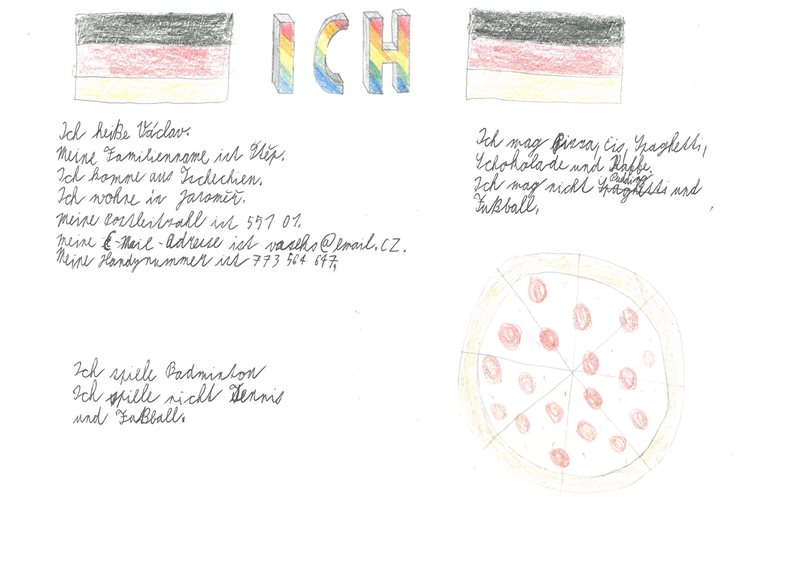 ICH
Ich heiße Václav.
Meine Familienname ist Štěp.
Ich komme aus Tschechien.
Ich wohne in Jaroměř.
Meine Postleitzahl ist 551 01.
meine E-Mail-Adresse ist vaseks@email.cz.
Meine Handynummer ist 773 564 647.
Ich mag Pizza, Eis, Spaghetti,
Schokolade und Kaffe.
Ich mag nicht Pudding und
Fußball.
Ich spiele Badminton
Ich spiele nicht Tennis
und Fußball.